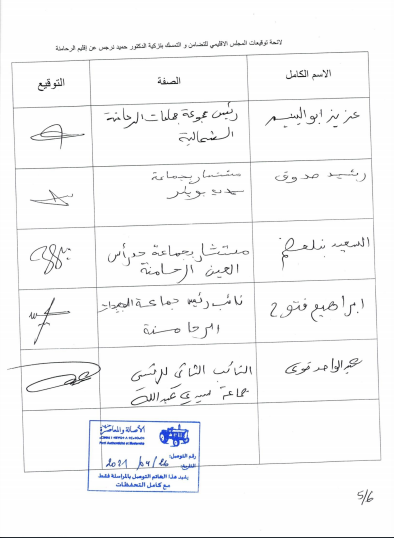 لائحة توقيعات المجلس الاقليمي للتضامن و التمسك بتزكية الدكتور حميد نرجس عن إقليم الرحامنة
الاسم الكامل
الصفة
التوقيع
عزيز
رئيس مجموعة جماعات الرحامنة
الشمالية
رشيد صدوق
مستشار بجماعة
سيدي بوبكر
السعيد
مستشار بجماعة
العين الرحامنة
ابراهيم فتوح
نائب رئيس جماعة
الرحامنة
عبد الواحد قوي
النائب الثاني للرئيس
جماعة سيدي عبد الله
الأصالة والمعاصرة
Parti Authenticité et Modernité
رقم التوصل:
التاريخ: 2021 /04/ 26
يفيد هذا الخاتم التوصل بالمراسلة فقط
مع كامل التحفظات
5/6